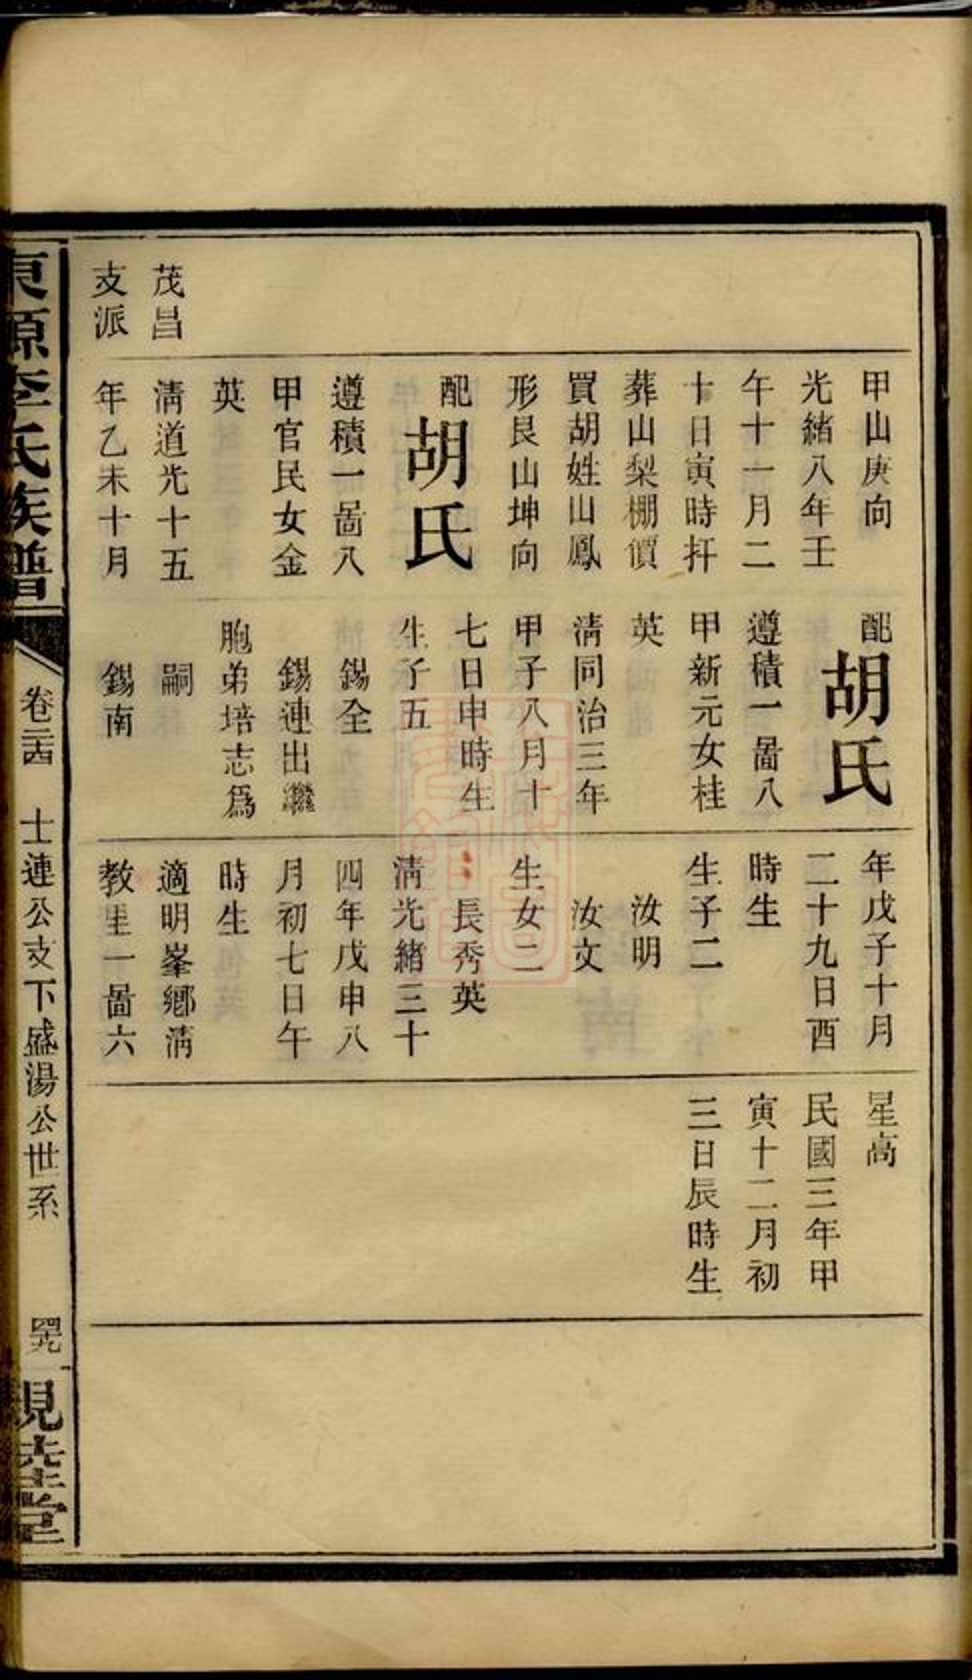 茂昌
支派
甲山庚向
光緒八年壬
午十一月二
十日寅時扦
葬山梨棚價
買胡姓山鳳
形艮山坤向
配胡氏
遵積一啚八
甲官民女金
英
清道光十五
年乙未十月
配胡氏
遵積一啚八
甲新元女桂
英
清同治三年
甲子八月十
七日申時生
生子五
錫全
錫連出繼
胞弟培志爲
嗣
錫南
年戊子十月
二十九日酉
時生
生子二
汝明
汝文
生女二
長秀英
清光緒三十
四年戊申八
月初七日午
時生
適明峯鄉清
教里一啚六
星高
民國三年甲
寅十二月初
三日辰時生
東源李氏族譜
卷二十四
士連公支下盛湯公世系
四九